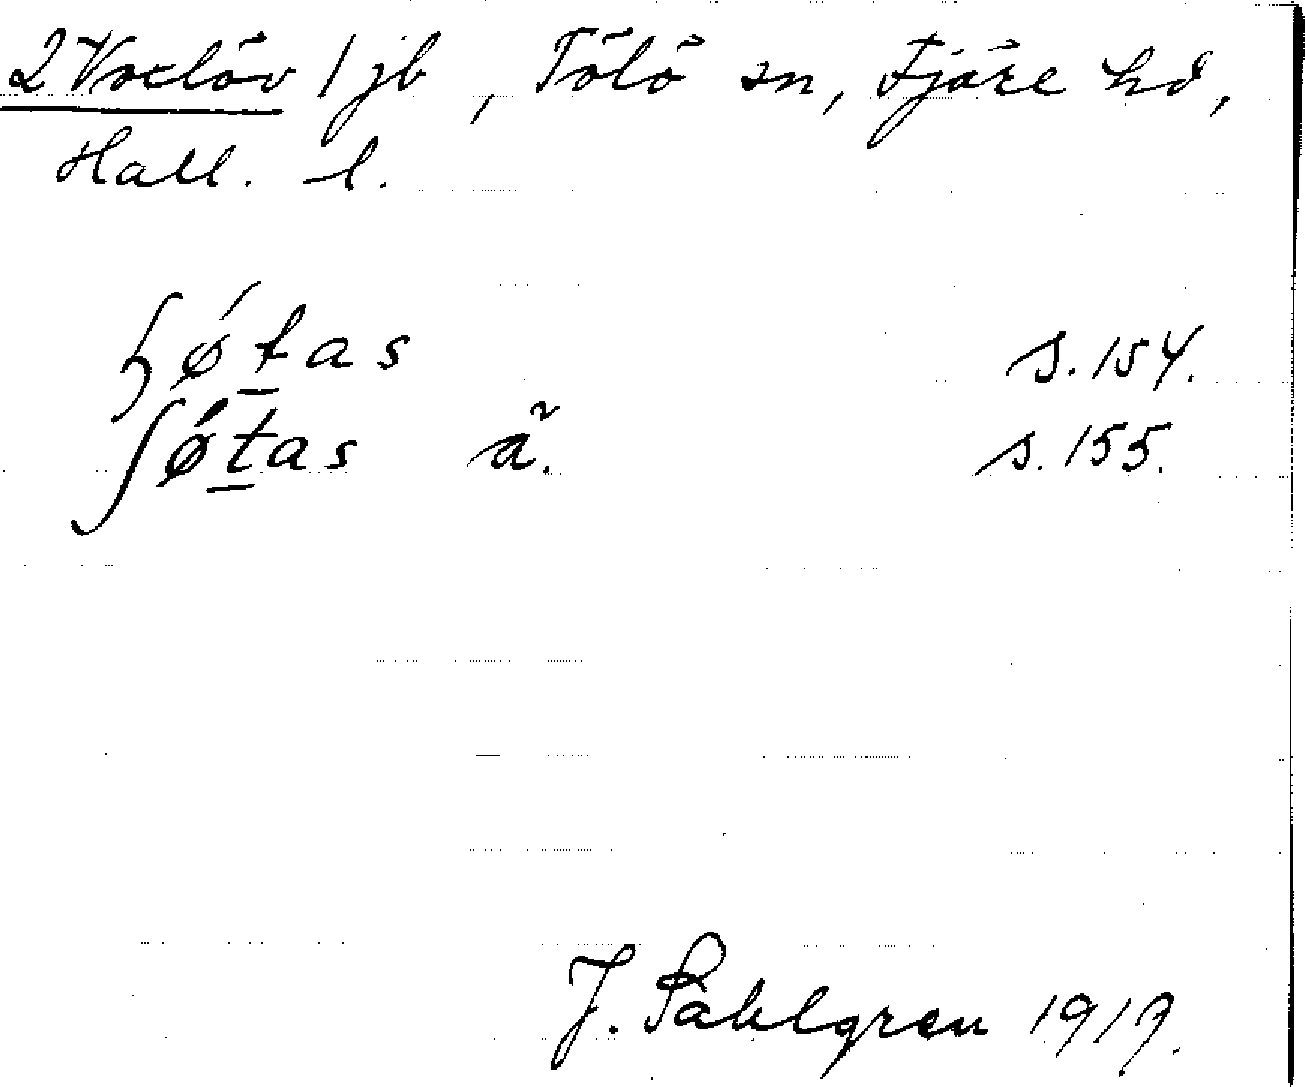 2 Voxlöv 1 jb, Tölö sn, Fjäre hd,
Hall. l.
ɧǿt̲as s. 154.
ʃǿt̲as ã. s. 155.
J. Sahlgren 1919.